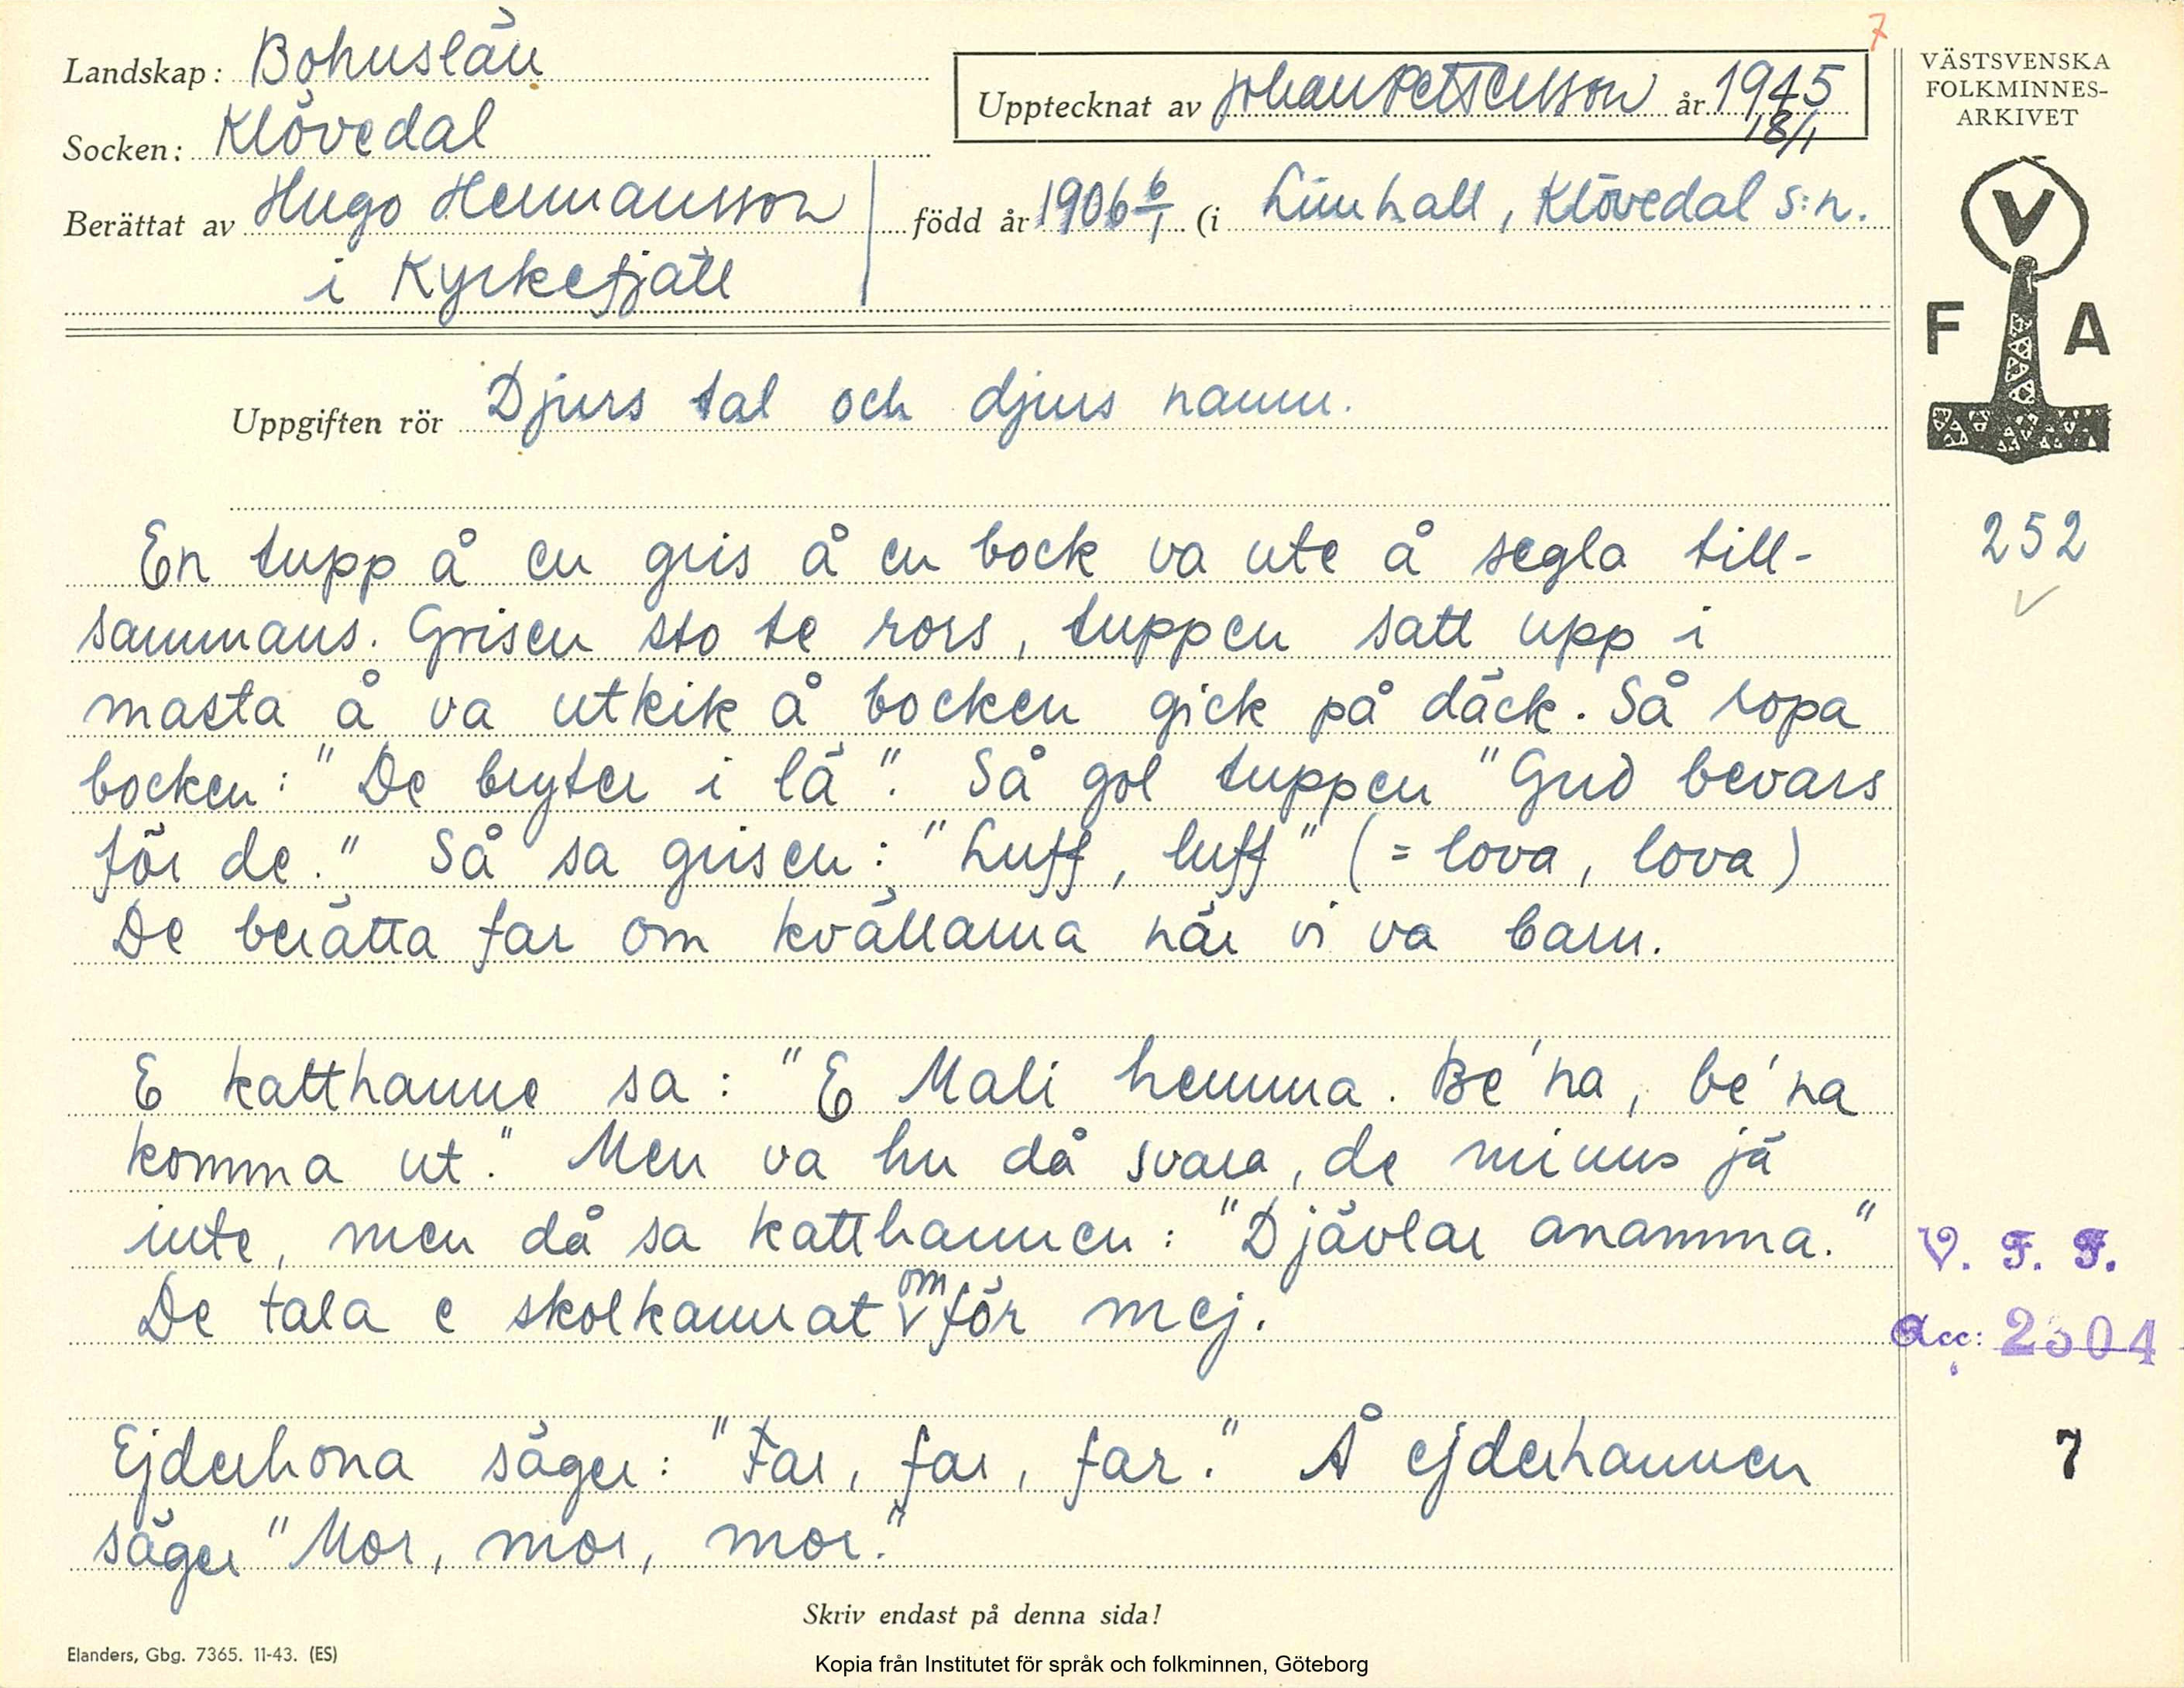 7
Landskap: Bohuslän
Upptecknat av Johan Pettersson år 1945
18/1
VÄSTSVENSKA
FOLKMINNES-
ARKIVET
Socken: Klövedal
Berättat av Hugo Hermansson född år 1906 6/1 (i Limhall, Klövedal s:n.
i Kyrkefjäll
V
F A
Uppgiften rör Djurs tal och djurs namn.
252
En tupp å en gris å en bock va ute å segla till-
sammans. Grisen sto te rors, tuppen satt upp i
masta å va utkik å bocken gick på däck. Så ropa
bocken: "De bryter i lä". Så gol tuppen "Gud bevars
för de." Så sa grisen: "Luff, luff" (= lova, lova)
De berätta far om kvällarna när vi va barn.
E katthanne sa: "E Mali hemma. Be'na, be'na
komma ut." Men va hu då svara, de minns jä
inte, men då sa katthannen: "Djävlar anamma."
De tala e skolkamrat om för mej.
V. F. F.
Acc: 2304
Ejderhona säger: "Far, far, far." Å ejderhannen
säger "Mor, mor, mor."
7
Skriv endast på denna sida!
Elanders, Gbg. 7365. 11-43. (ES)
Kopia från Institutet för språk och folkminnen, Göteborg